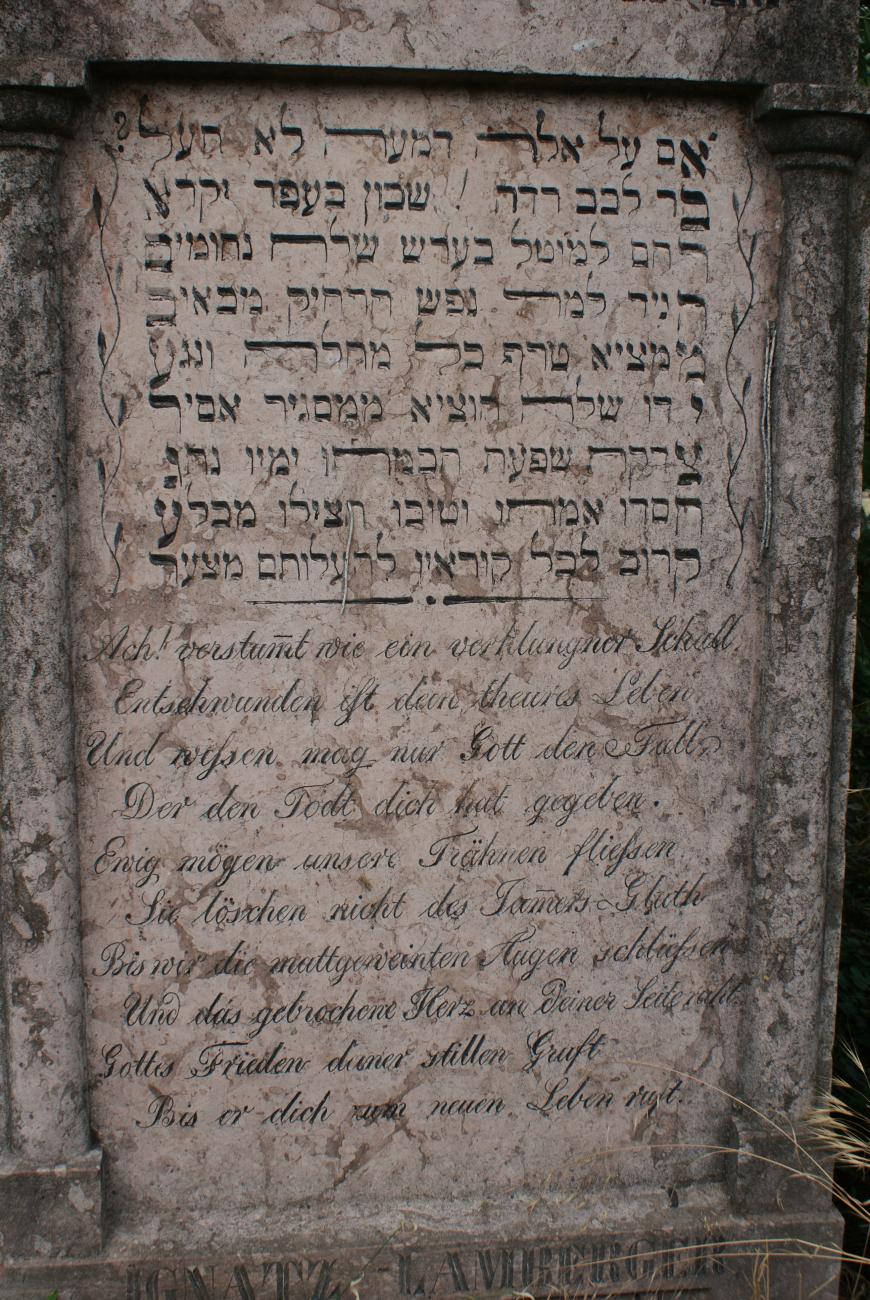 אם על אלה דמעה לא תעל
בר לבב רדה ! שכון בעפר יקרא
רחם למיטל בערש שלח נחומים
הניר למה נפש הרחיק מבאיב
ממציא טרף כל מחלה ונגע
ידו שלח הוציא ממסגיר אסיר
צדקה שפעת חכמתו ימיו נתן
חסדו אמתו וטיבו הצילו מבלע
קרוב לכל קוראיו להעלותם מצער
Ach! verstum̅t wie ein verklungner Schall,
Entschwunden ist dein theures Leben
Und wissen mag nur Gott den Fall,
Der den Todt dich hat gegeben.
Ewig mögen unsere Trähnen fliessen
Sie löschen nicht des Jam̅ers Gluth
Bis wir die mattgeweinten Augen schliessen
Und das gebrochene Herz an Deiner Seite ruht
Gottes Frieden deiner stillen Gruft
Bis er dich zum neuen Leben ruft.
IGNATZ LAMBERGER